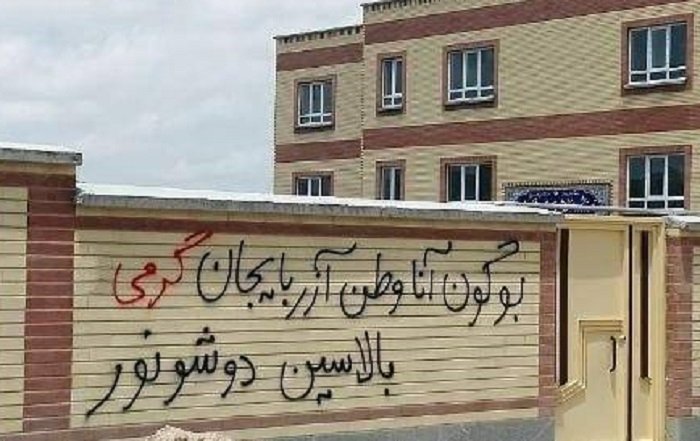 بو گون آنا وطن آزربایجان گرمی
بالاسین دوشونور